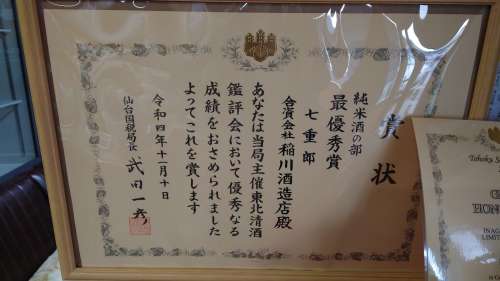 賞状
純米酒の部
最優秀賞
七重郎
合資会社 稲川酒造店殿
あなたは当局主催東北清酒
鑑評会において優秀なる
成績をおさめられました
よってこれを賞します
令和四年十一月十日
仙台国税局長 武田一彦
Tohoku S
HON
INAG
LIMIT